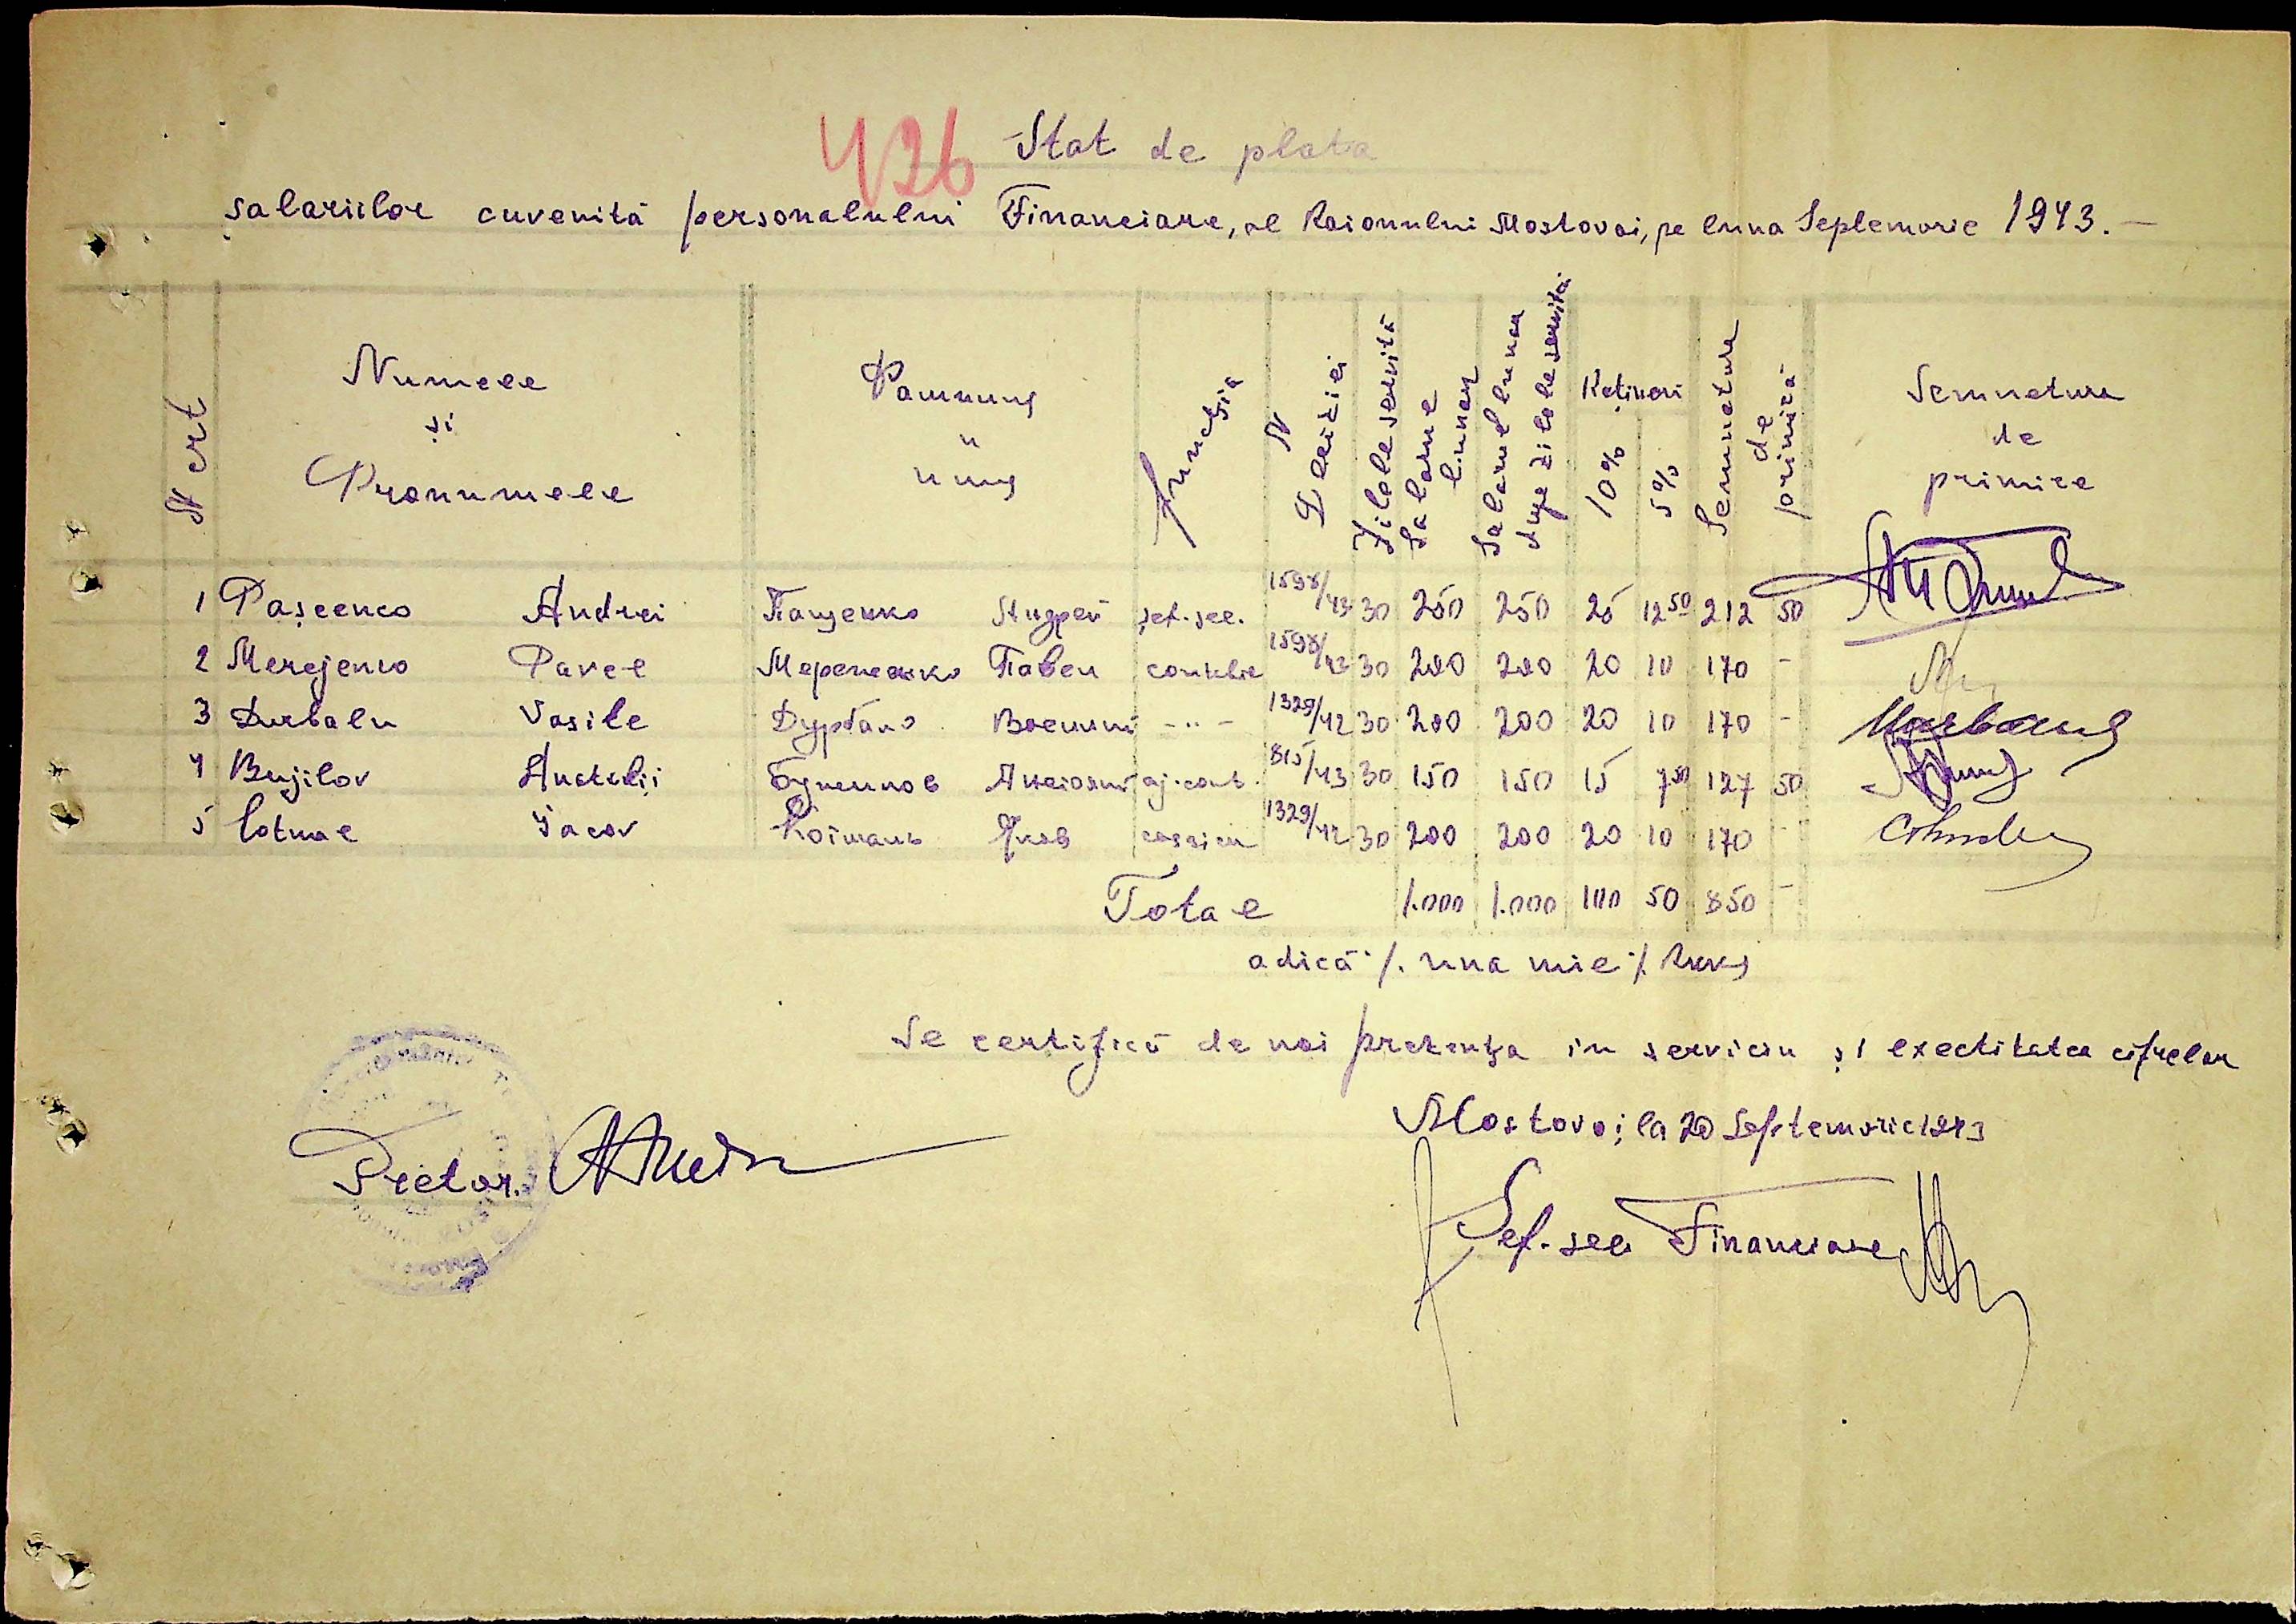 426
Stat de plata
salariilor cuvenită personalului Financiare, al Raionului Mostovoi, pe luna Septemvrie 1943. —
N crt Numele și Pronumele Фамилия и имя funcția N Deciziei Zilele servită Salarue lunar Salarul lunar după zilele servita Rețineri 10% 5% Semnatura de primită Semnatura de primire
1 Pașcenco Andrei Пащенко Андрей șef. sec. 1598/43 30 250 250 25 12 50 212 50
2 Merejenco Pavel Мереженко Павел contabil 1598/43 30 200 200 20 10 170 -
3 Durbalu Vasile Дурбало Василий - " - 1329/42 30 200 200 20 10 170 -
4 Bujilov Anatolii Бужилов Анатолий aj. cont. 815/43 30 150 150 15 7 50 127 50
5 Cotman Iacov Котмань Яков cassier 1329/42 30 200 200 20 10 170 -
Total 1.000 1.000 100 50 850 -
adică ·/. una mie ·/. RKKS
Se certifică de noi prezența in serviciu și exectitatea cifrelor
Mostovoi, la 20 Septemvrie 1943
Pretor.
Șef. sec. Financiare